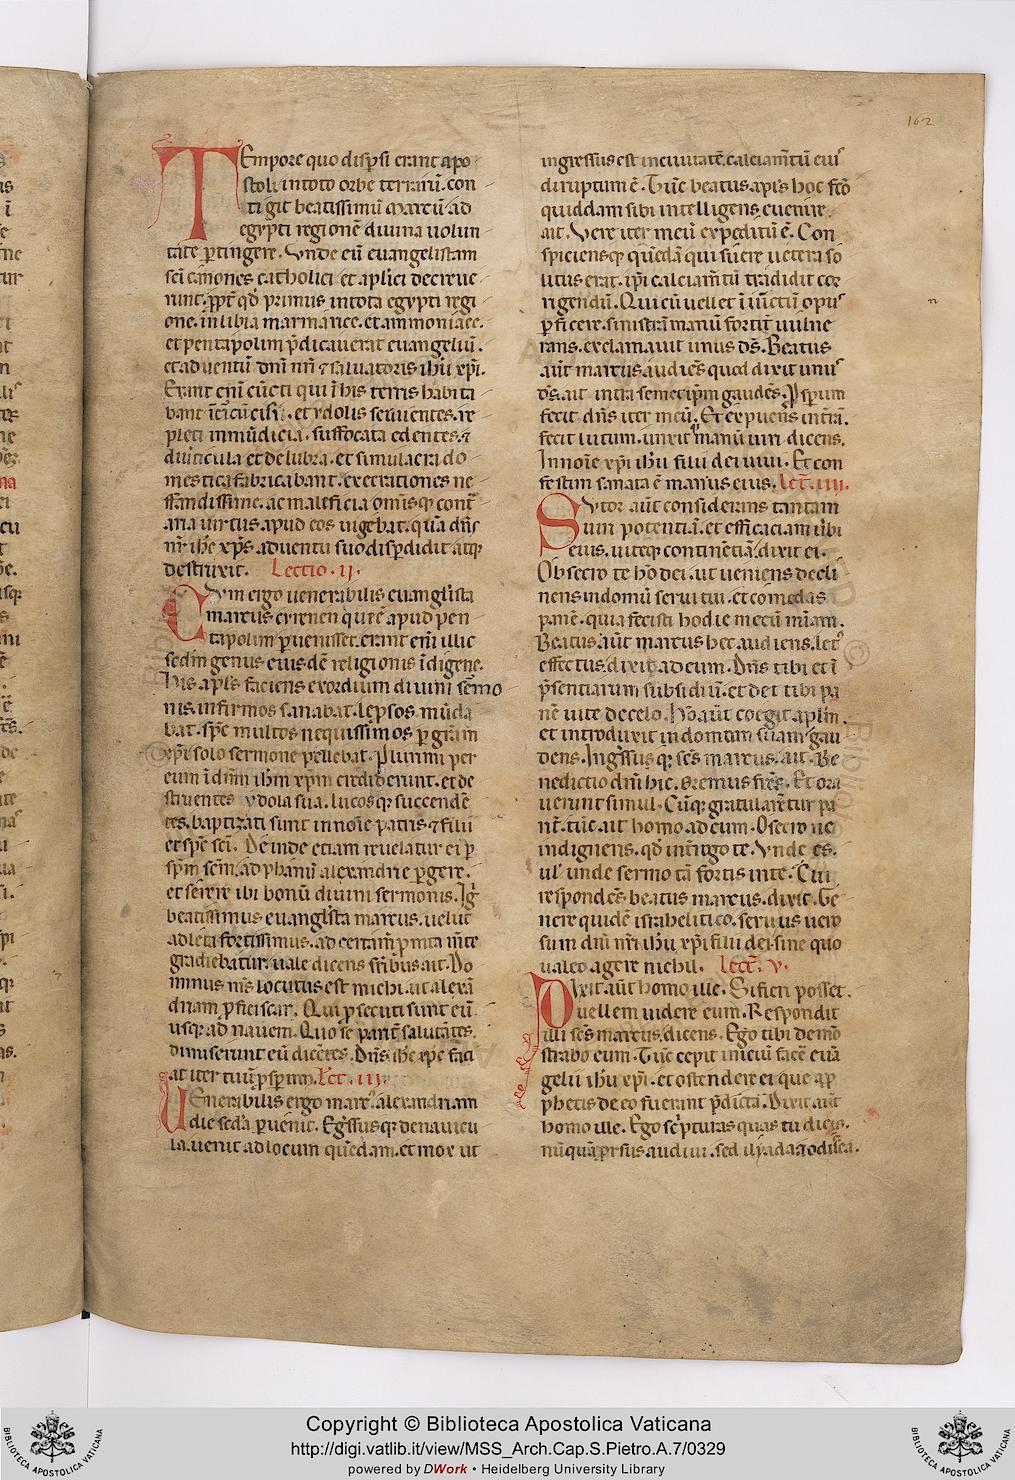 162
Tempore quo dispsi erant apo
stoli. in toto orbe terrarū. con
tigit beatissimū marcū ad
egypti regionē diuina uolun
tate ꝑtingere. Vnde eū euangelistam
sci canones catholici et aplici decreue
runt. ppt qd primus in tota egypti regi
one. in libia marmarice. et ammoniace.
et pentapolim p̄dicauerat euangeliū.
et aduentū dn̄i nr̄i ⁊ saluatoris ihū xp̄i.
Erant eni cūcti qui ī his terris habita
bant et ydolis seruientes. re
pleti inmūdicia. suffocata edentes. ⁊
diuticula et delubra. et simulacra do
mestica fabricabant. execrationes ne
fandissime. ac maleficia omīsq; cont̄
aria uirtus apud eos uigebat. quā dn̄s
nr̄ ihc xp̄s. aduentu suo dispdidit atq;
destruxit. Lectio. ij.
Cvm ergo uenerabilis euanglista
marcus cyrenen qui ē apud pen
tapolim ꝑuenisset. erant eni illic
sed in genus eius dē religionis īdigene.
His apl̄s faciens exordium diuini sermo
nis. infirmos sanabat. leprsos mūda
bat. spe multos nequissimos ꝑ gram
xp̄i solo sermone pellebat. Plurimi per
eum ī dn̄m ihm xp̄m crediderunt. et de
struentes ydola sua. lucosq; succendē
tes. baptizati sunt in noīe patris ⁊ filii
et sp̄c sc̄i. Deinde etiam reuelatur ei ꝑ
sp̄m sc̄m. ad phamū alexandrie ꝑgere.
et serere ibi bonū diuini sermonis. Igr̄
beatissimus euanglista marcus. uelut
adleta fortissimus. ad certam̄ pmta m̄te
gradiebatur. uale dicens frībus ait. Do
minus mīs locutus est michi. ut alexā
driam ꝑficiscar. Qui ꝑsecuti sunt eū
usq; ad nauem. Quo se pant̄ salutātes.
dimiserunt eū dicētes. Dn̄s ihc xp̄c faci
at iter tuū ꝓspm. Lct. iij.
Venerabilis ergo marc' alexandriam
die scd'a ꝑuenit. Egr̄ssusq; de nauicu
la. uenit ad locum quēdam. et mox ut
ingressus est in ciuitatē. calciam̄tū eius
diruptum ē. Tūc beatus apl̄s hoc fc̄o
quiddam sibi intelligens euenire.
ait. Vere iter meū expeditū ē. Con
spiciensq; quēdā qui suere uetera so
litus erat. ip̄i calciam̄tū tradidit cor
rigendū. Qui cū uellet ī iūctū opus
ꝑficere. sinistrā manū fortit̄ uulne
rans. exclamauit unus ds̄. Beatus
aūt marcus audiēs quod dixit unus
ds̄. ait intra semetip̄m gaudēs. Pspum
fecit dn̄s iter meū. Et expuens in tr̄a.
fecit lutum. unxit manū uiri dicens.
In noīe xp̄i ihū filii dei uiui. Et con
festim sanata ē manus eius. Lect. iiij.
Svtor aūt considerans tantam
uim potentiā. et efficaciam ubi
eius. uiteq; continētiā. dixit ei.
Obsecro te hō dei. ut ueniens decli
nens in domū serui tui. et comedas
panē. quia fecisti hodie mecū m̄iam.
Beatus aūt marcus hec audiens. let'
effectus. dixit ad eum. Dn̄s tibi et ī
p̄sentiarum subsidiū. et det tibi pa
nē uite de celo. Hō aūt coegit aplm̄.
et introduxit in domum suam gau
dens. Ingr̄ssus q; scs̄ marcus. ait. Be
nedictio dn̄i hic. oremus frēs. Et ora
uerunt simul. Cūq; gratularētur pa
rit̄. tūc ait homo ad eum. Osecro ne
indignens. qd̄ int̄rogo te. Vnde es.
ul' unde sermo tā fortis in te. Cui
respondēs beatus marcus. dixit. Ge
nere quidē israhelitico. seruus uero
sum dn̄i nr̄i ihū xp̄i filii dei. sine quo
ualeo agere nichil. Lect. v.
Dixit aūt homo ille. Si fieri posset.
uellem uidere eum. Respondit
illi scs̄ marcus. dicens. Ego tibi demō
strabo eum. Tūc cepit iniciū facē euā
gelii ihū xp̄i. et ostendere ei que a ꝓ
phetis de eo fuerant p̄dicta. Dixit aūt
homo ille. Ego sc̄pturas quas tu dicis.
nūquā prsus audiui. sed ilyada ⁊ odissea.
Copyright © Biblioteca Apostolica Vaticana
http://digi.vatlib.it/view/MSS_Arch.Cap.S.Pietro.A.7/0329
powered by DWork • Heidelberg University Library
BIBLIOTECA APOSTOLICA VATICANA
BIBLIOTECA APOSTOLICA VATICANA